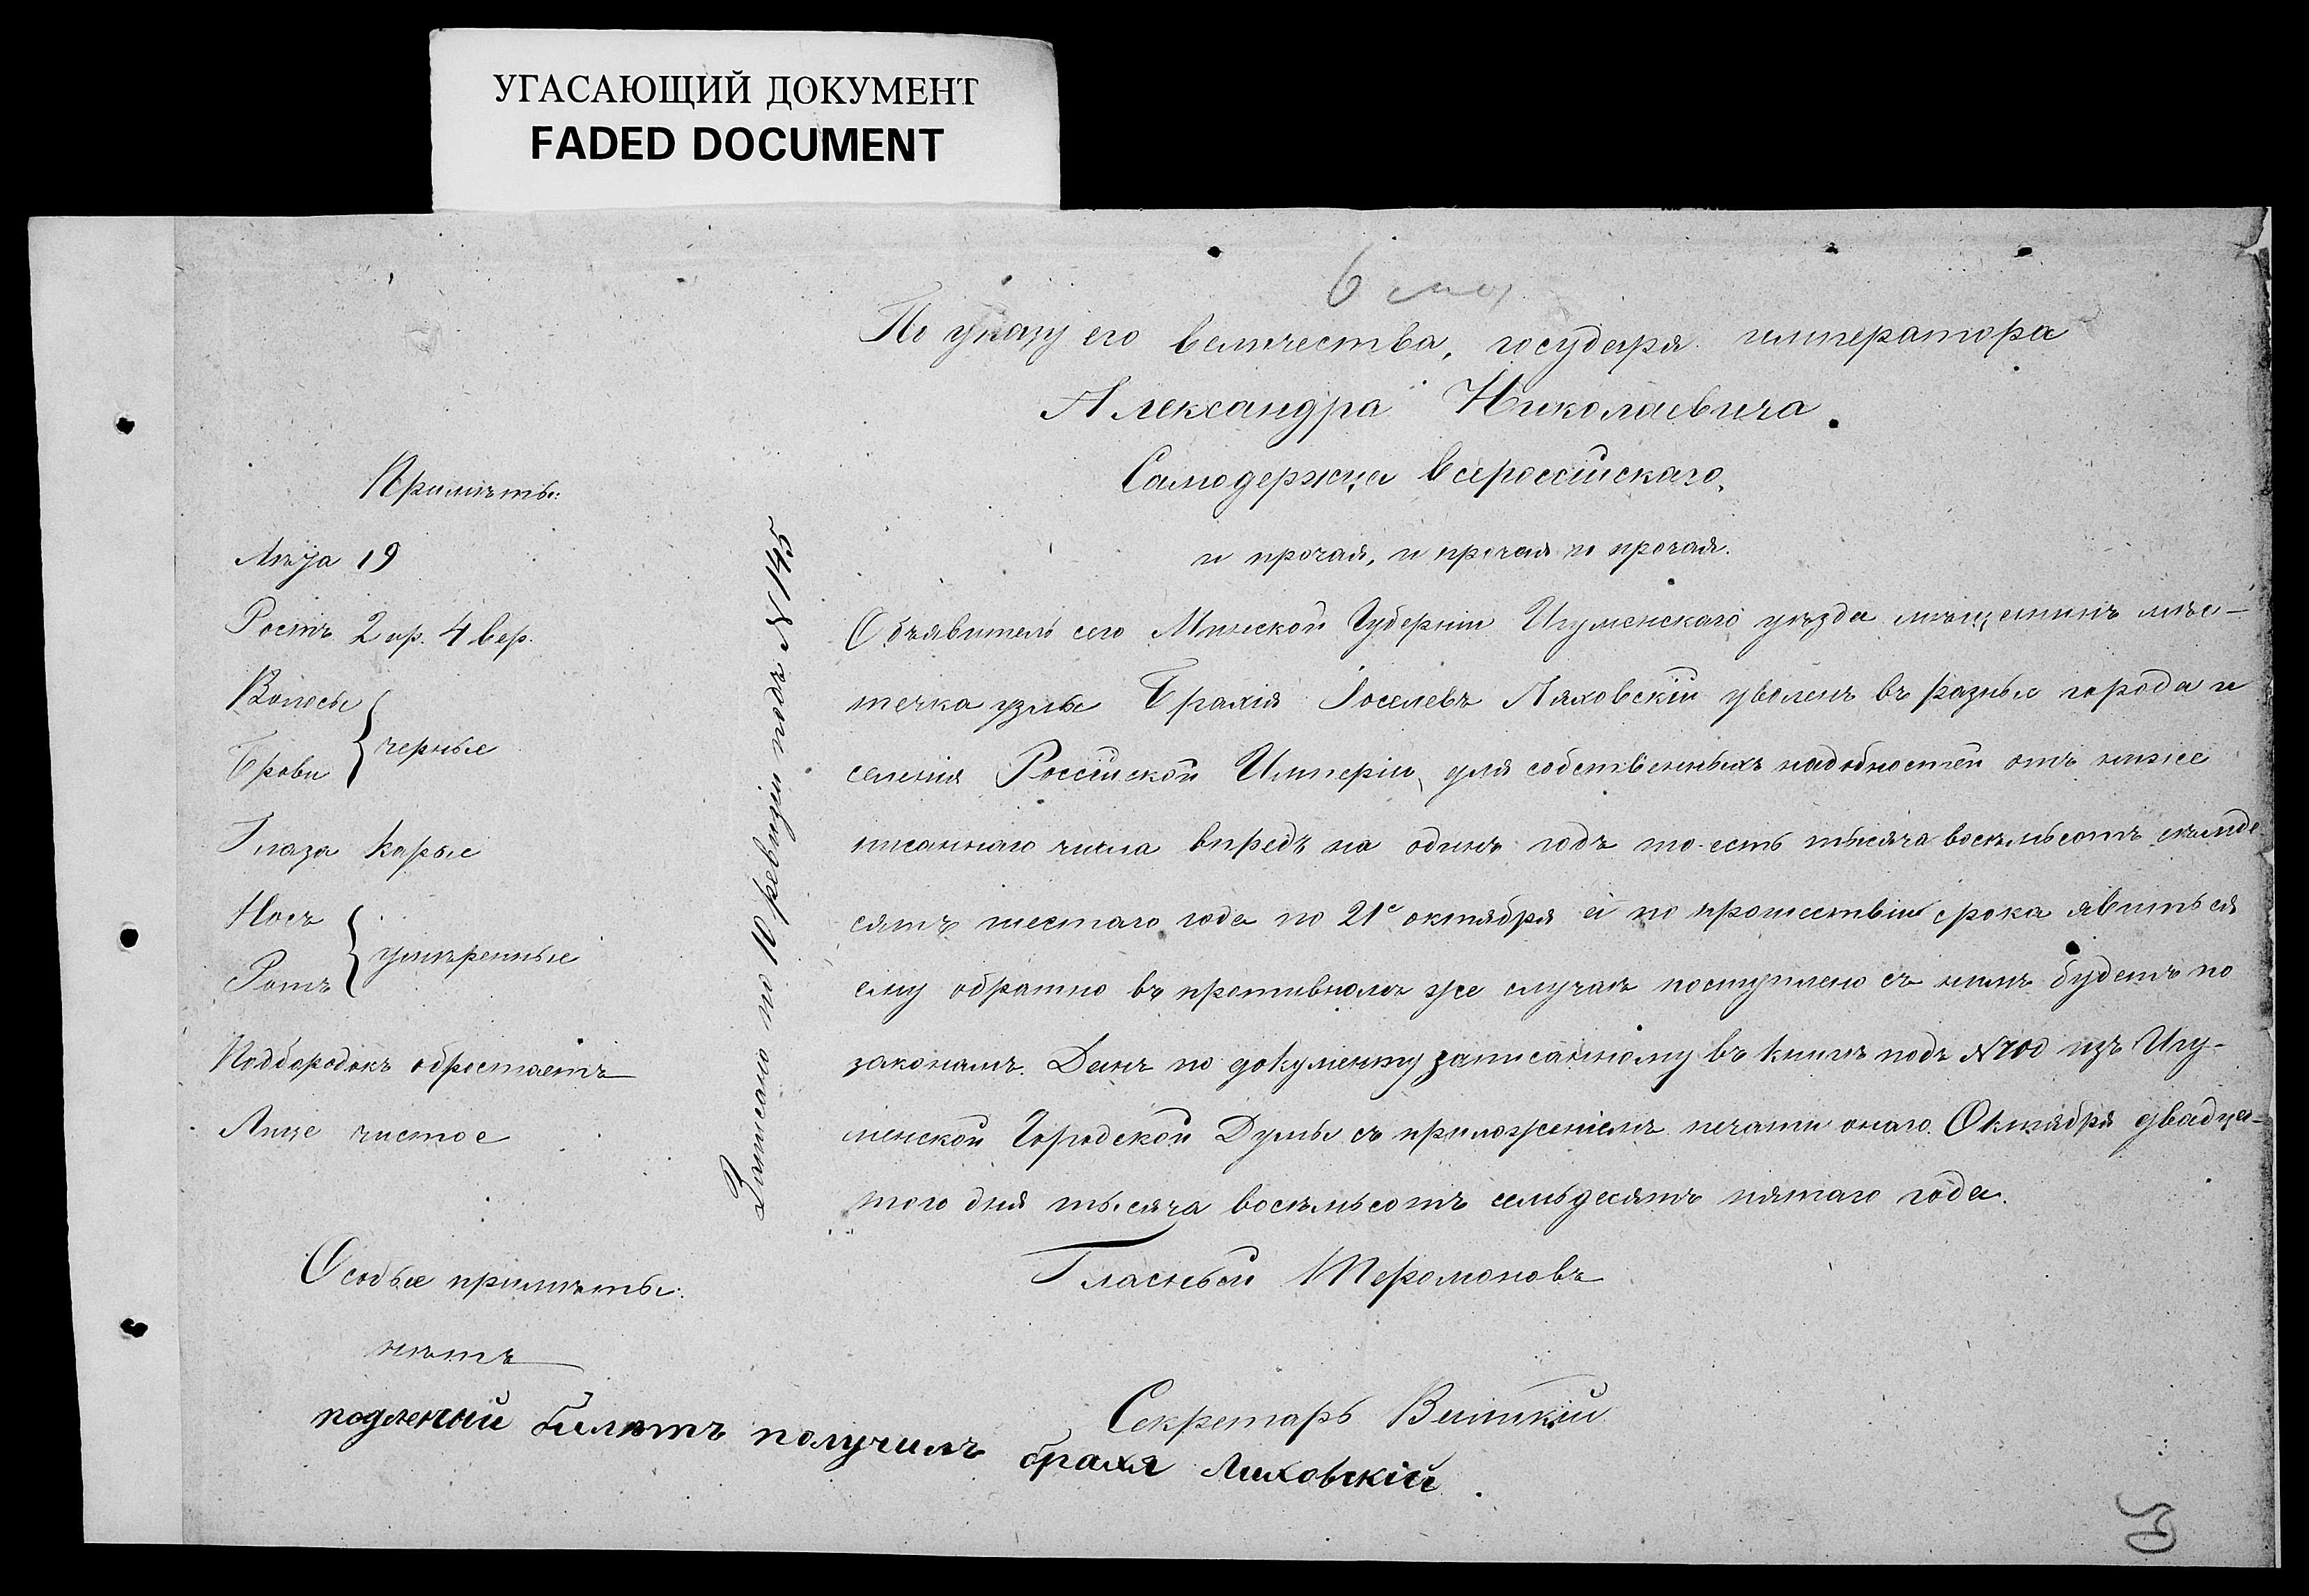 УГАСАЮЩИЙ ДОКУМЕНТ
FADED DOCUMENT
По указу его величества, государя императора
Александра Николаевича.
Самодержца всероссійскаго,
и прочая, и прочая и прочая.
Примѣты:
Лѣта 19
Ростъ 2 ар. 4 вер.
Волосы
Брови
черные
Глаза карые
Носъ
Ротъ
умѣренные
Подбородокъ обростаетъ
Лице чистое
Особые примѣты:
нѣтъ
Записано по 10 ревизіи подъ № 145
Объявитель сего Минской Губерніи Игуменскаго уѣзда мѣщанинъ мѣс-
течка узды Брахія Іоселевъ Ляховскій уволенъ въ разные города и
селенія Россійской Имперіи, для собственныхъ надобностей отъ ниже
писаннаго числа впредь на одинъ годъ то есть тысяча восемьсотъ семьде
сятъ шестаго года по 21е октября и по прошествіи срока явиться
ему обратно въ противномъ же случаѣ поступлено съ нимъ будетъ по
законамъ. Данъ по документу записанному въ книгѣ подъ № 700 изъ Игу-
менской Городской Думы съ приложеніемъ печати онаго. Октября двадца-
того дня тысяча восемьсотъ семьдесятъ пятаго года.
Гласный
Секретарь
подленый билетъ получилъ брахя Ляховскій.